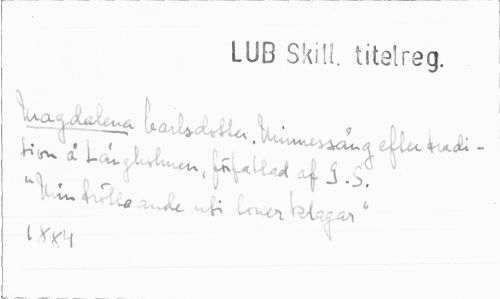 LUB Skill. titelreg.
Magdalena Carlsdotter. Minnessång efter tradi-
tion å Långholmen, författad af G. S.
"Min trötta ande uti toner klagar"
1884